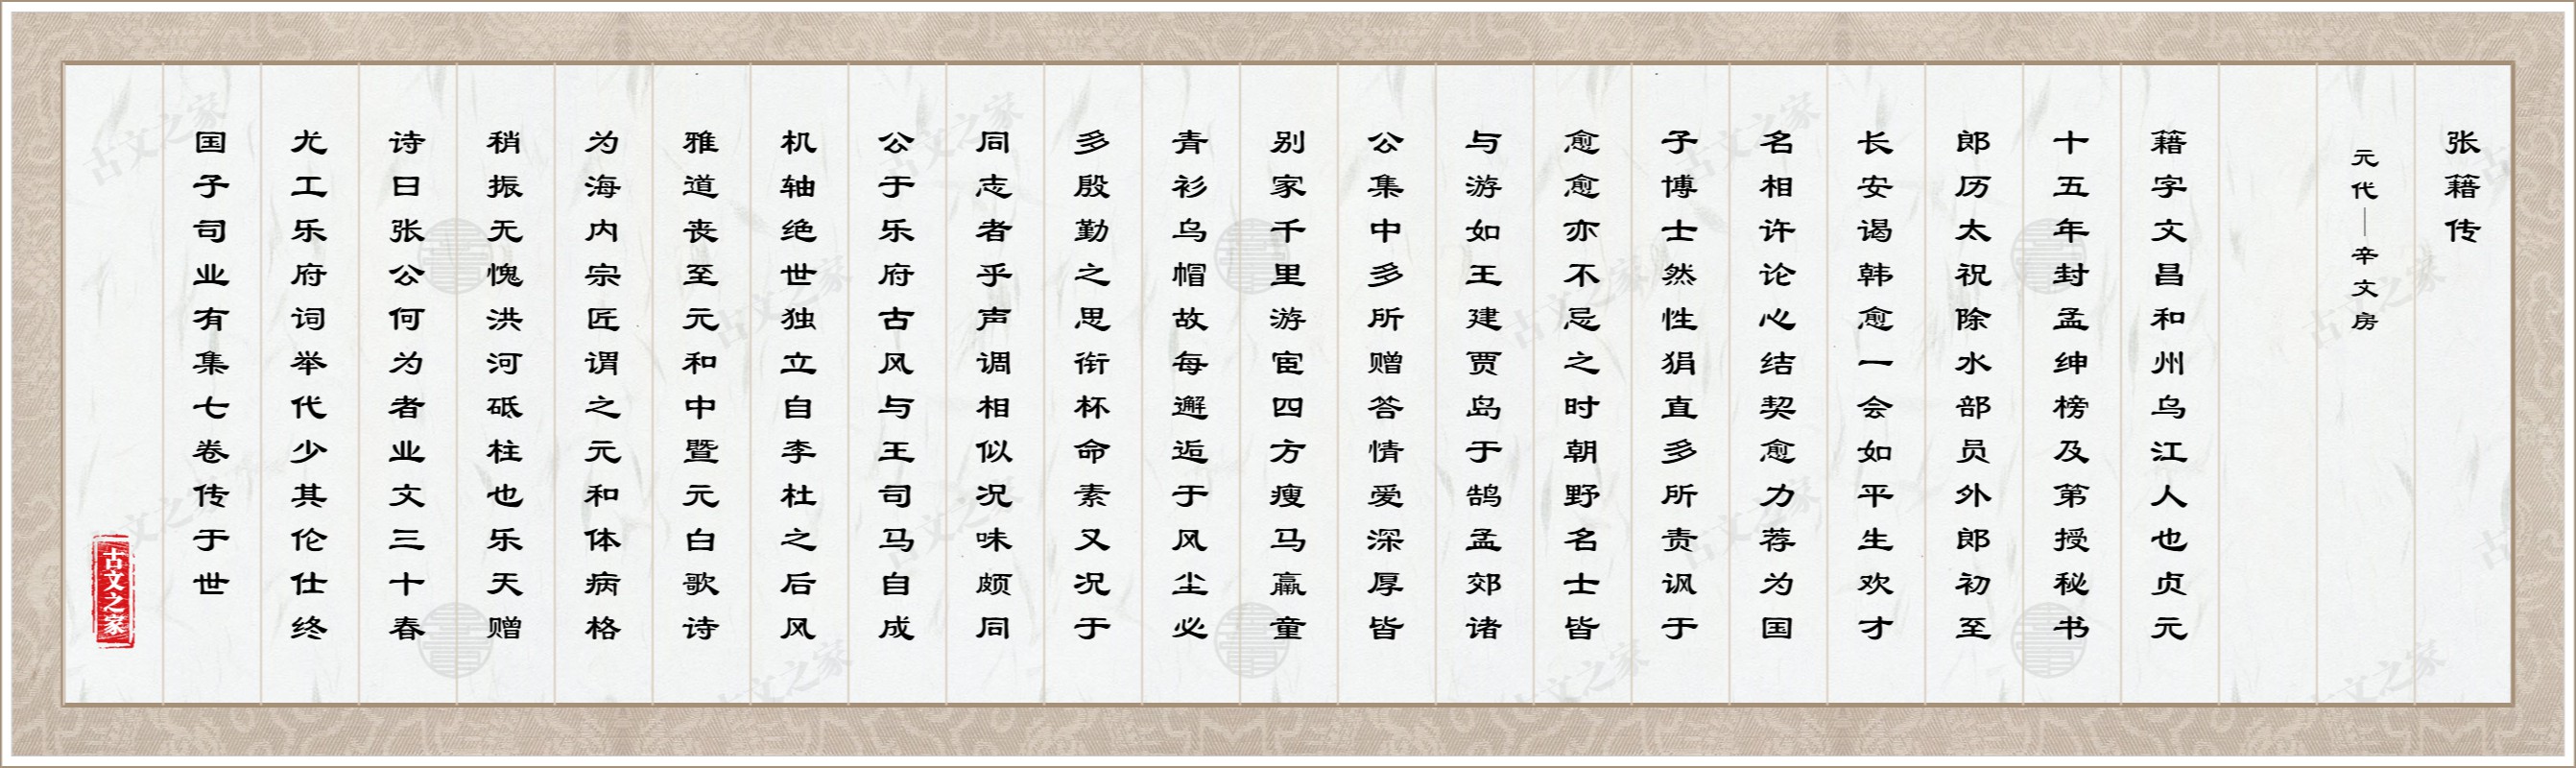 张籍传
元代｜辛文房
籍字文昌和州乌江人也贞元
十五年封孟绅榜及第授秘书
郎历太祝除水部员外郎初至
长安谒韩愈一会如平生欢才
名相许论心结契愈力荐为国
子博士然性狷直多所责讽于
愈愈亦不忌之时朝野名士皆
与游如王建贾岛于鹄孟郊诸
公集中多所赠答情爱深厚皆
别家千里游宦四方瘦马羸童
青衫乌帽故每邂逅于风尘必
多殷勤之思衔杯命素又况于
同志者乎声调相似况味颇同
公于乐府古风与王司马自成
机轴绝世独立自李杜之后风
雅道丧至元和中暨元白歌诗
为海内宗匠谓之元和体病格
稍振无愧洪河砥柱也乐天赠
诗曰张公何为者业文三十春
尤工乐府词举代少其伦仕终
国子司业有集七卷传于世
古文之家